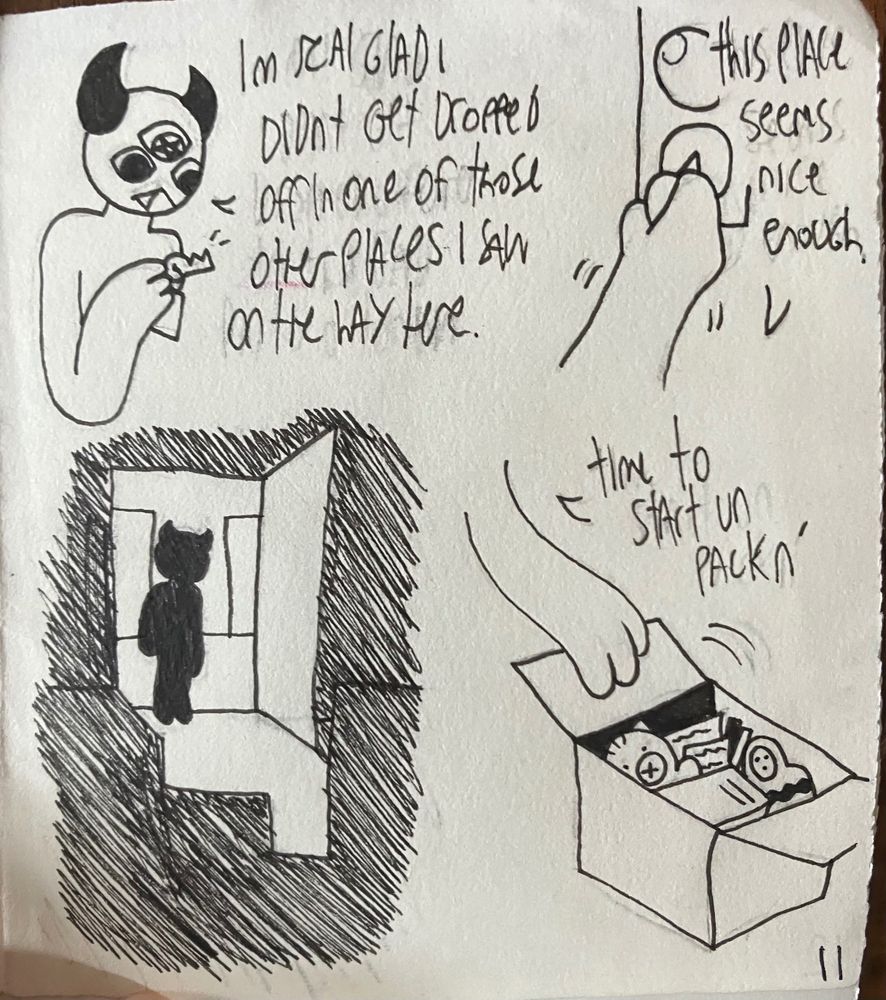 Im real GLAD I
DIDnt Get DroppeD
off In one of those
other PLACes I SAW
on the WAY here.
this PLACe
seems
nice
enough.
time to
StArt un
PACKn'
11